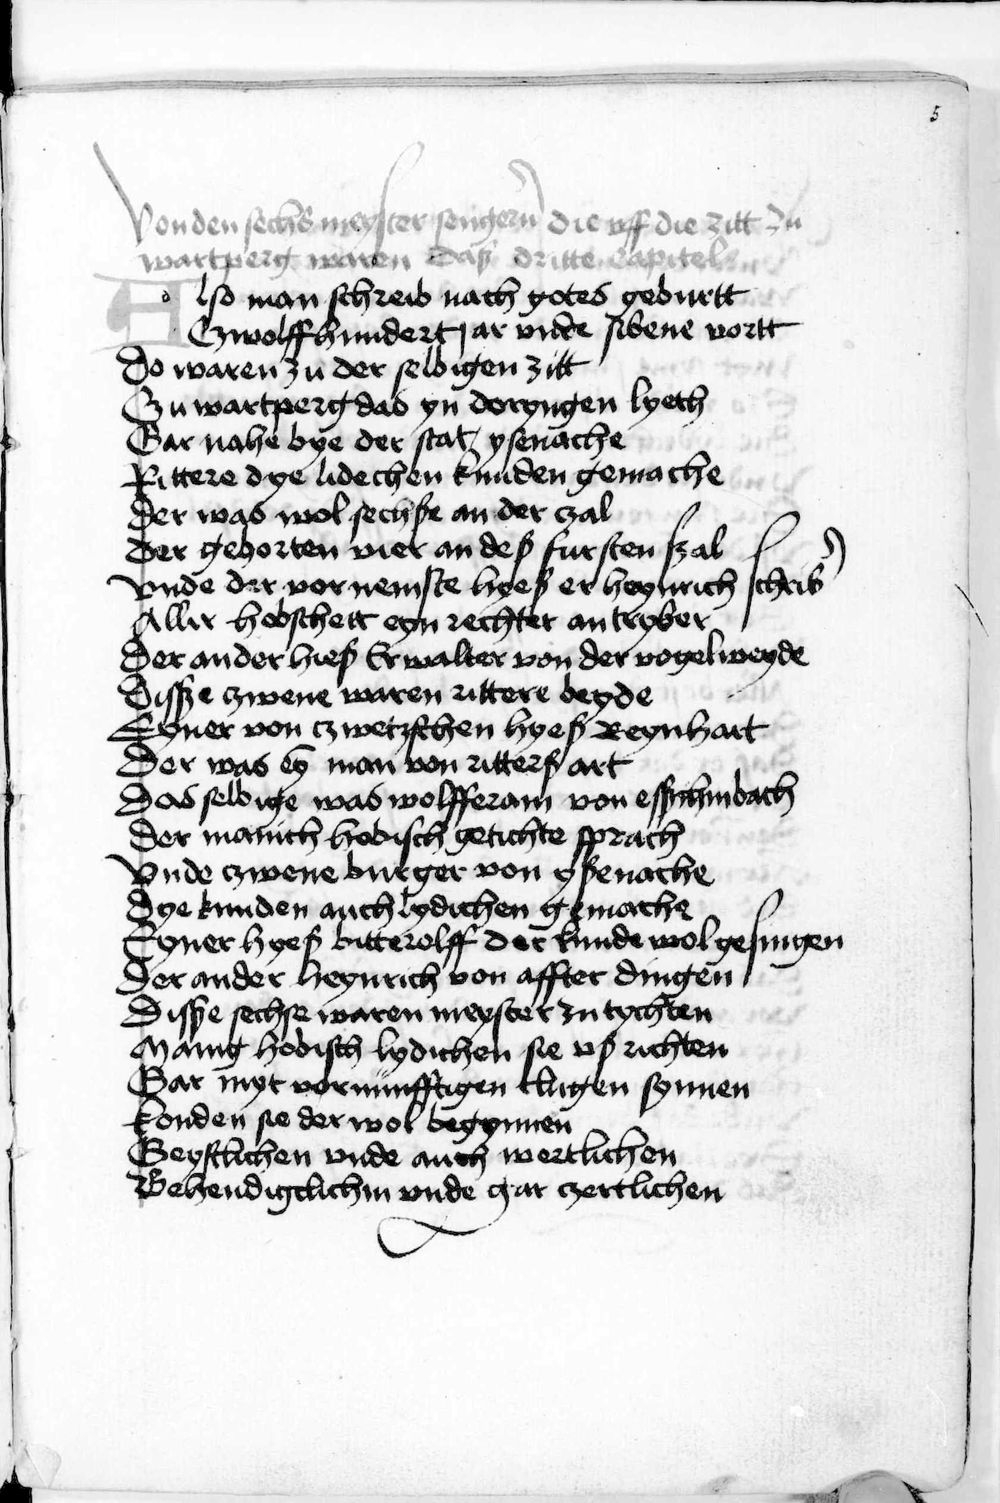 5
Von den sechs meyster sengern die vff die zitt zu
wartperg waren Daß dritte Capitel
Also man schreib nach gotes geburtt
Czwolffhundert jar vnde sibene vortt
Do waren zu der selbigen zitt
Czu wartperg das yn doryngen lyeth
Gar nahe bye der statz ysenache
Rittere dye lidechen kunden gemache
Der was wol sechße an der czal
Der gehorten vier an deß fursten szal
Vnde der vornemste hyeß er heynrich schrib
Aller hobschett eyn rechter antryber
Der ander hieß Er walter von der vogelweyde
Disße czwene waren rittere beyde
Eyner von czwetzschen hyeß Reynhart
Der was ey man von ritterß art
Das selbige was wolfferam von esschinbach
Der manich hobisch getichte sprach
Vnde czwene burger von yßenache
Dye kunden auch lydichen gemache
Eyner hyeß bitterolff Der kunde wol gesingen
Der ander heynrich von affter dingen
Disße sechse waren meyster zu tychten
Manig hobisch lydichen sie vß richten
Gar myt vornünfftigen clugen synnen
Konden sie der wol begynnen
Geystlichen vnde auch wertlichen
Behendigclichin vnde gar czertlichen